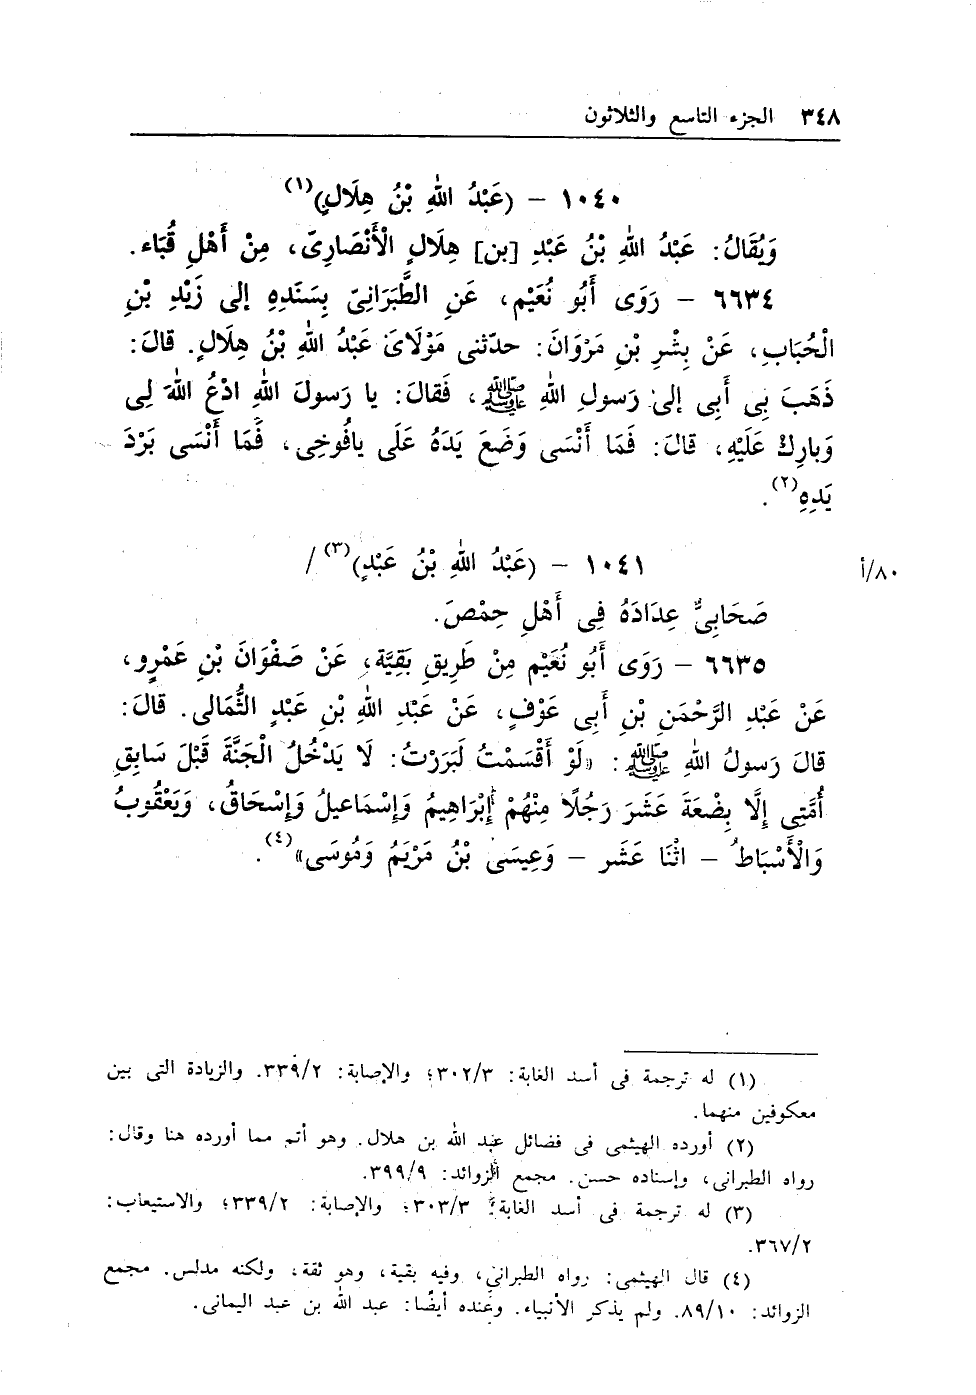 ٣٤٨ الجزء التاسع والثلاثون
١٠٤٠ – (عَبْدُ اللهِ بْنُ هِلَالٍ)(١)
وَيُقَالُ: عَبْدُ اللهِ بْنُ عَبْدِ [بن] هِلَالٍ الْأَنْصَارِىّ، مِنْ أَهْلِ قُبَاء.
٦٦٣٤ – رَوَى أَبُو نُعَيْم، عَنِ الطَّبَرَانِىّ بِسَنَدِهِ إلى زَيْدِ بْنِ
الْحُبَابِ، عَنْ بِشْرِ بْنِ مَرْوَانَ: حدّثنى مَوْلَاىَ عَبْدُ اللهِ بْنُ هِلَالٍ. قالَ:
ذَهَبَ بِى أَبِى إلىٰ رَسولِ اللهِ ﷺ، فَقالَ: يا رَسولَ اللهِ ادْعُ اللهَ لِى
وَبارِكْ عَلَيْهِ، قالَ: فَمَا أَنْسَى وَضَعَ يَدَهُ عَلَى يافُوخِى، فَمَا أَنْسَى بَرْدَ
يَدِهِ(٢).
١٠٤١ – (عَبْدُ اللهِ بْنُ عَبْدٍ)(٣) /
٨٠/أ
صَحَابِىٌّ عِدَادَهُ فِى أَهْلِ حِمْصَ.
٦٦٣٥ – رَوَى أَبُو نُعَيْم مِنْ طَرِيقِ بَقِيَّة، عَنْ صَفْوَانَ بْنِ عَمْرٍو،
عَنْ عَبْدِ الرَّحْمَنِ بْنِ أَبِى عَوْفٍ، عَنْ عَبْدِ اللهِ بْنِ عَبْدٍ الثُّمَالى. قالَ:
قالَ رَسولُ اللهِ ﷺ: «لَوْ أَقْسَمْتُ لَبَرَرْتُ: لَا يَدْخُلُ الْجَنَّةَ قَبْلَ سَابِقِ
أُمَّتِى إِلَّا بِضْعَةَ عَشَرَ رَجُلًا مِنْهُمْ إبْرَاهِيمُ وَإِسْمَاعيلُ وَإِسْحَاقُ، وَيَعْقُوبُ
وَالْأَسْبَاطُ – اثْنَا عَشَر – وَعِيسَى بْنُ مَرْيَمُ وَمُوسَى»(٤).
(١) له ترجمة فى أسد الغابة: ٣٠٢/٣؛ والإصابة: ٣٣٩/٢. والزيادة التى بين
معكوفين منهما.
(٢) أورده الهيثمى فى فضائل عبد الله بن هلال. وهو أتم مما أورده هنا وقال:
رواه الطبرانى، وإسناده حسن. مجمع الزوائد: ٣٩٩/٩.
(٣) له ترجمة فى أسد الغابة: ٣٠٣/٣؛ والإصابة: ٣٣٩/٢؛ والاستيعاب:
٣٦٧/٢.
(٤) قال الهيثمى: رواه الطبرانى، وفيه بقية، وهو ثقة، ولكنه مدلس. مجمع
الزوائد: ٨٩/١٠. ولم يذكر الأنبياء. وعنده أيضًا: عبد الله بن عبد اليمانى.